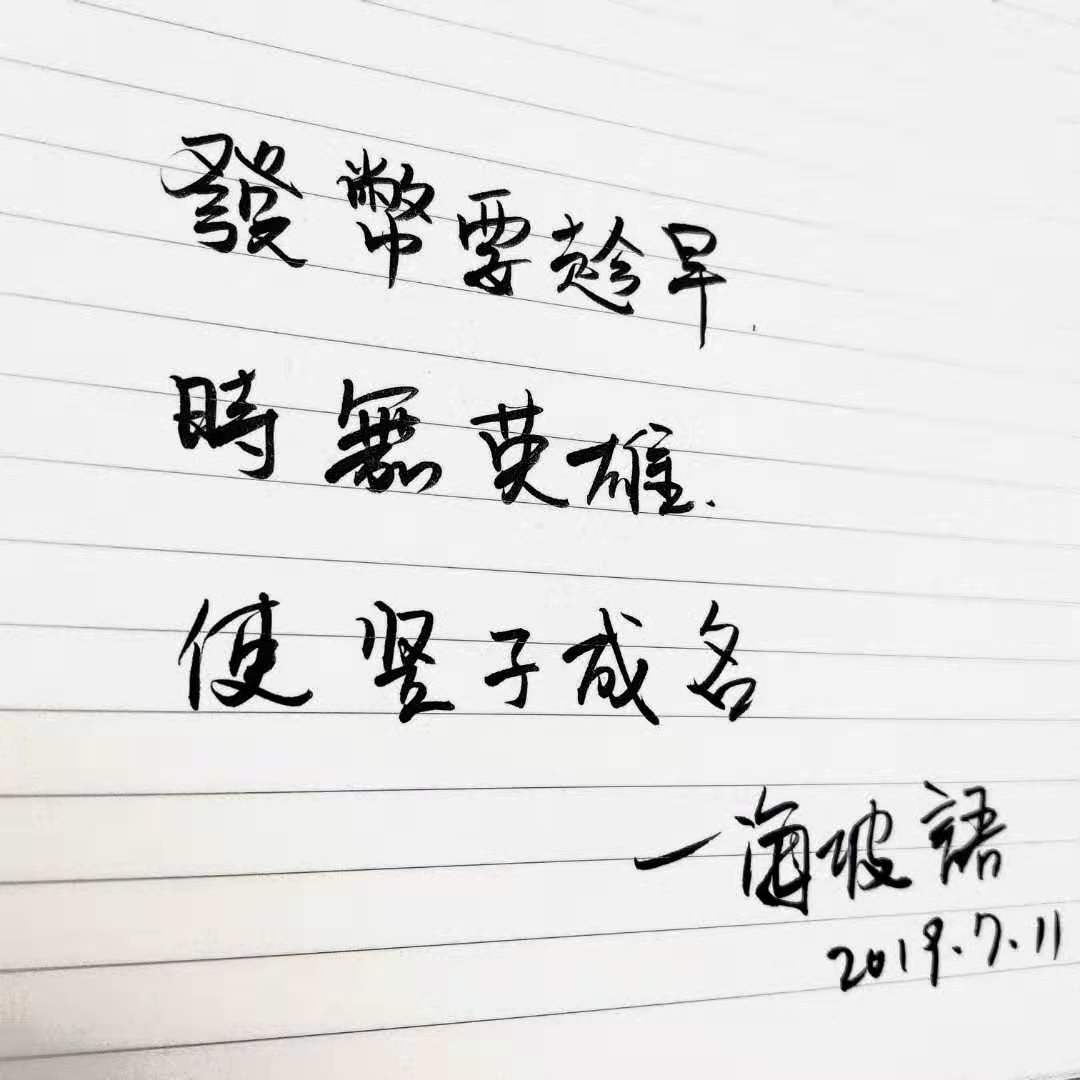 發幣要趁早
時無英雄.
使竪子成名
一海坡語
2019.7.11